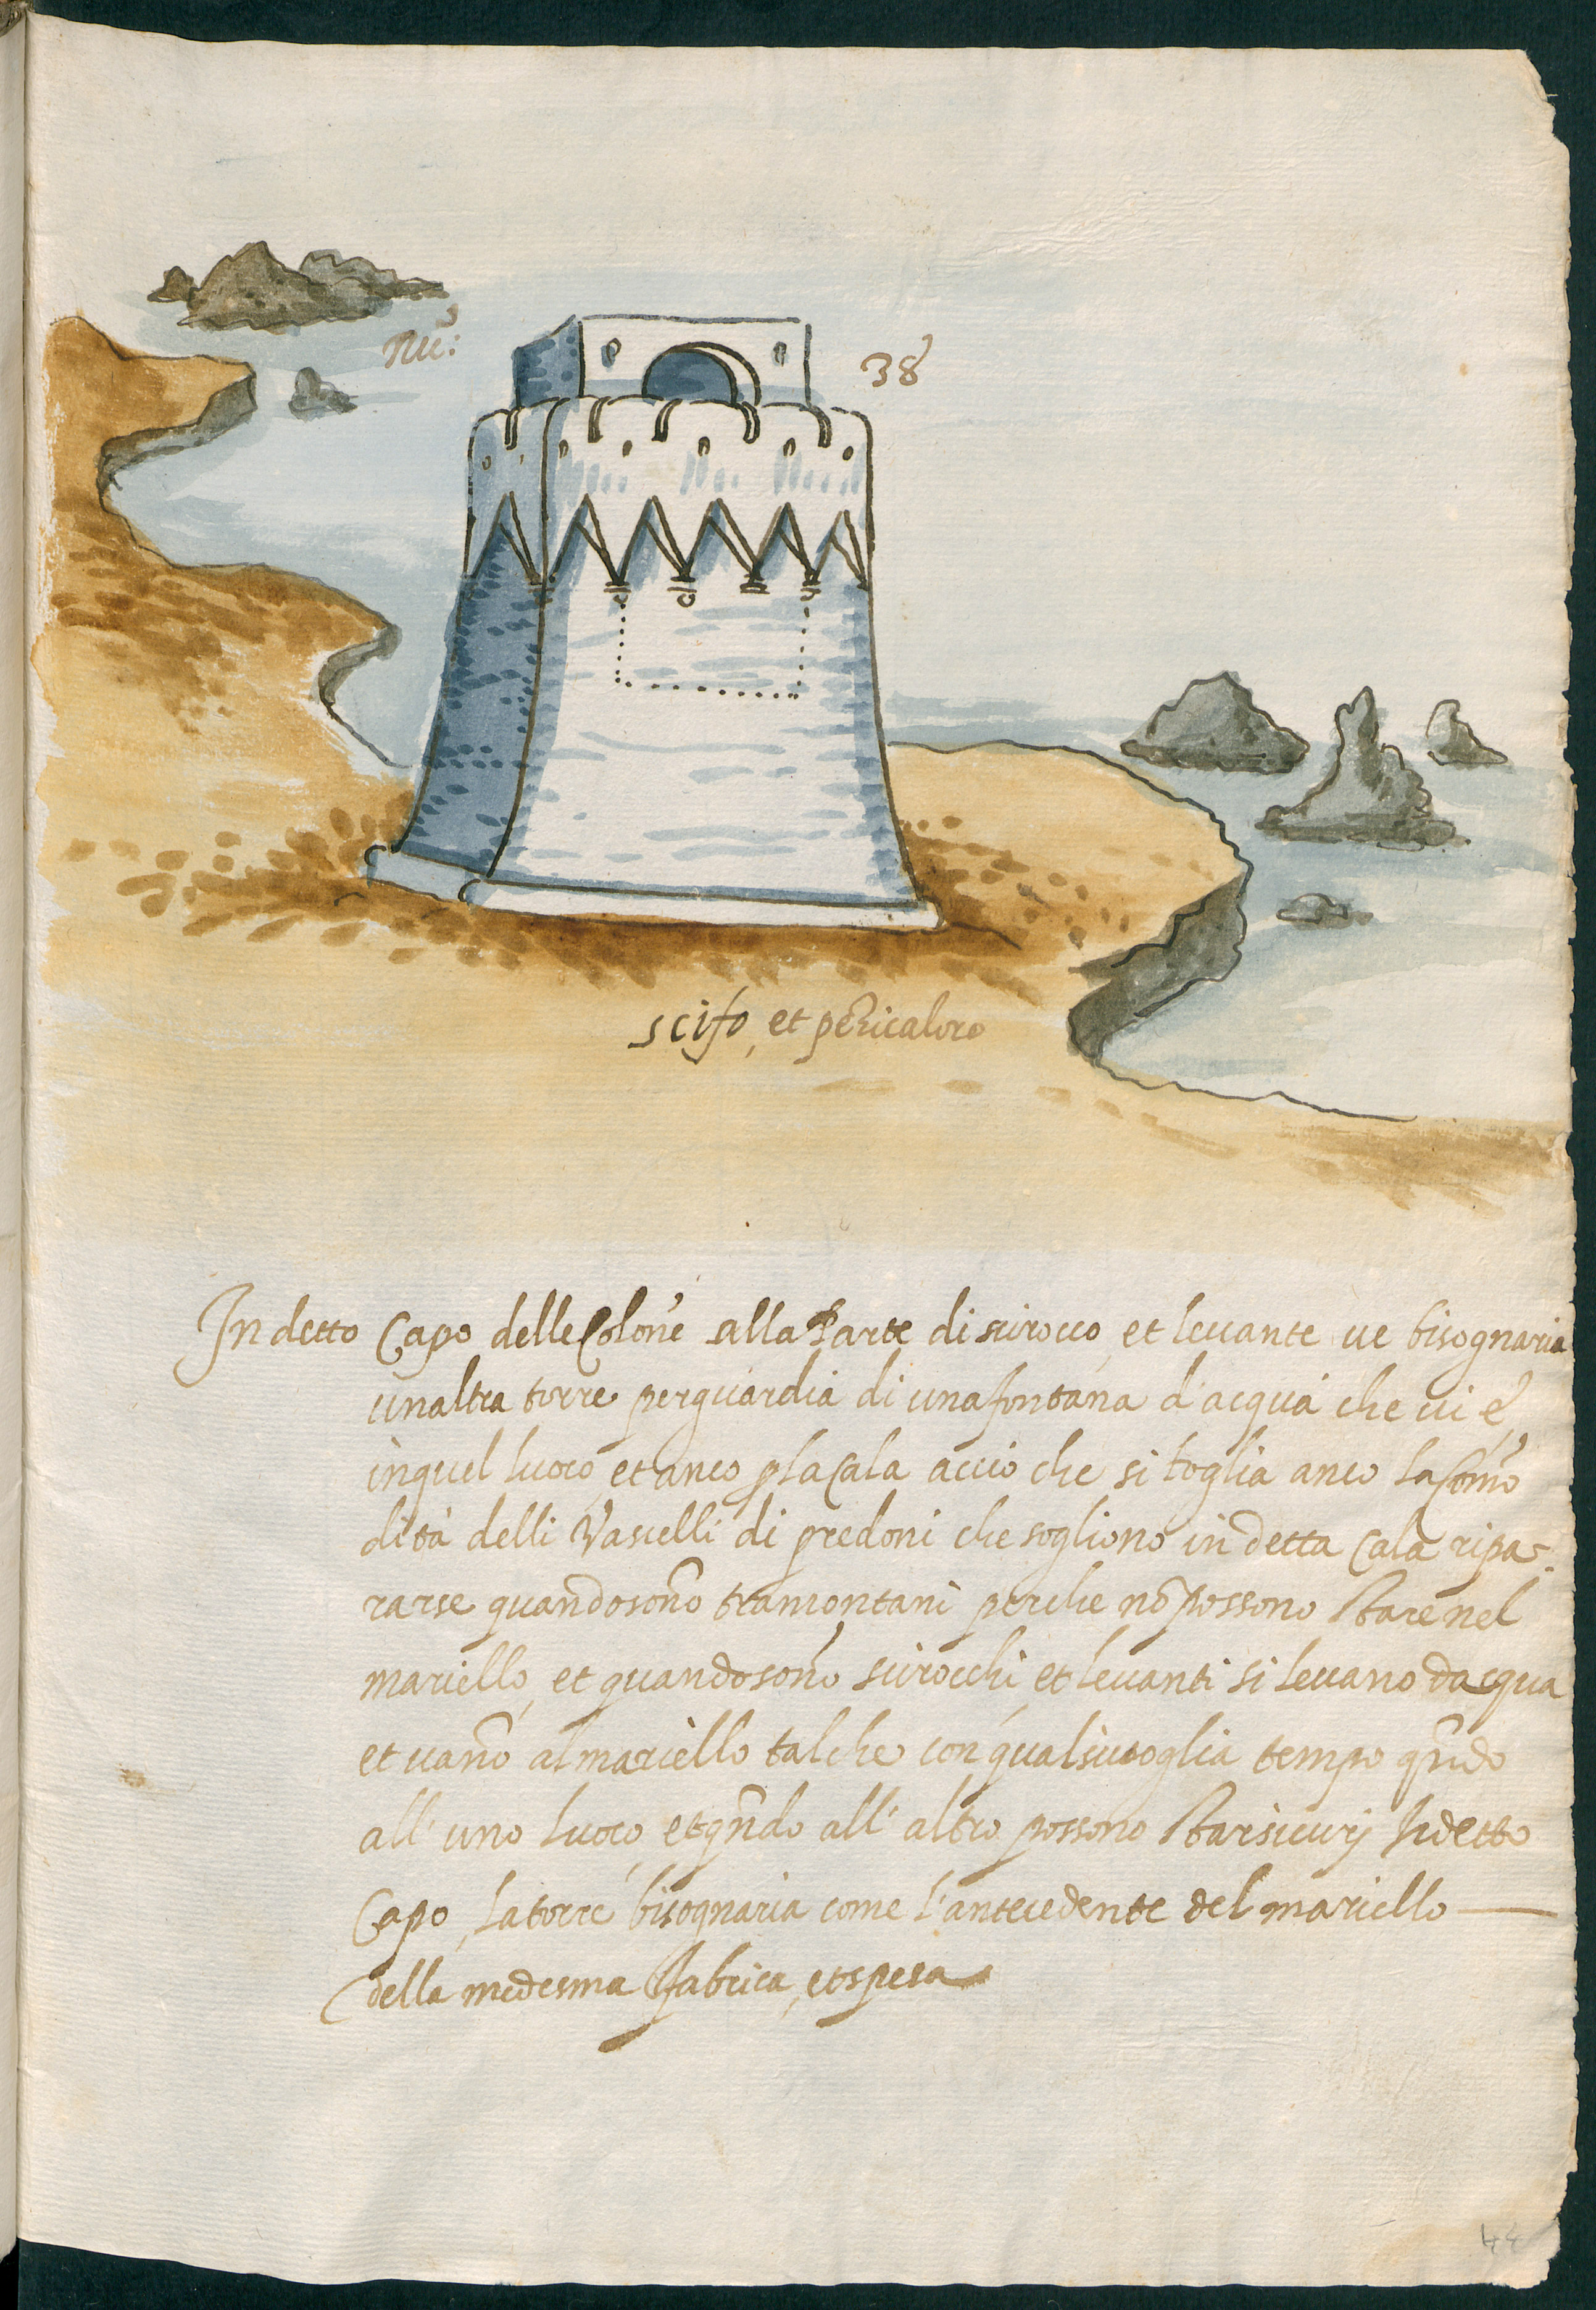 Nu.º: 38
scifo, et pericaloro
In detto Capo delle Colone alla Parte di scirocco, et leuante ue bisognaria
unaltra torre perguardia di una fontana d'acqua che ui é
inquel luoco, et anco p la Cala accio che si toglia anco la Com̃o
dità delli Vascelli di predoni che sogliono in detta Cala ripa-
rarse quando sono tramontani perche nõ possono stare nel
mariello, et quando sono scirocchi, et leuanti si leuano dacqua
et uano al mariello talche con qualsiuoglia tempo qñdo
all'uno luoco, et qñdo all'altro possono star sicurj In detto
Capo, la torre bisognaria come l'antecedente del mariello
della medesma fabrica, et spesa
44